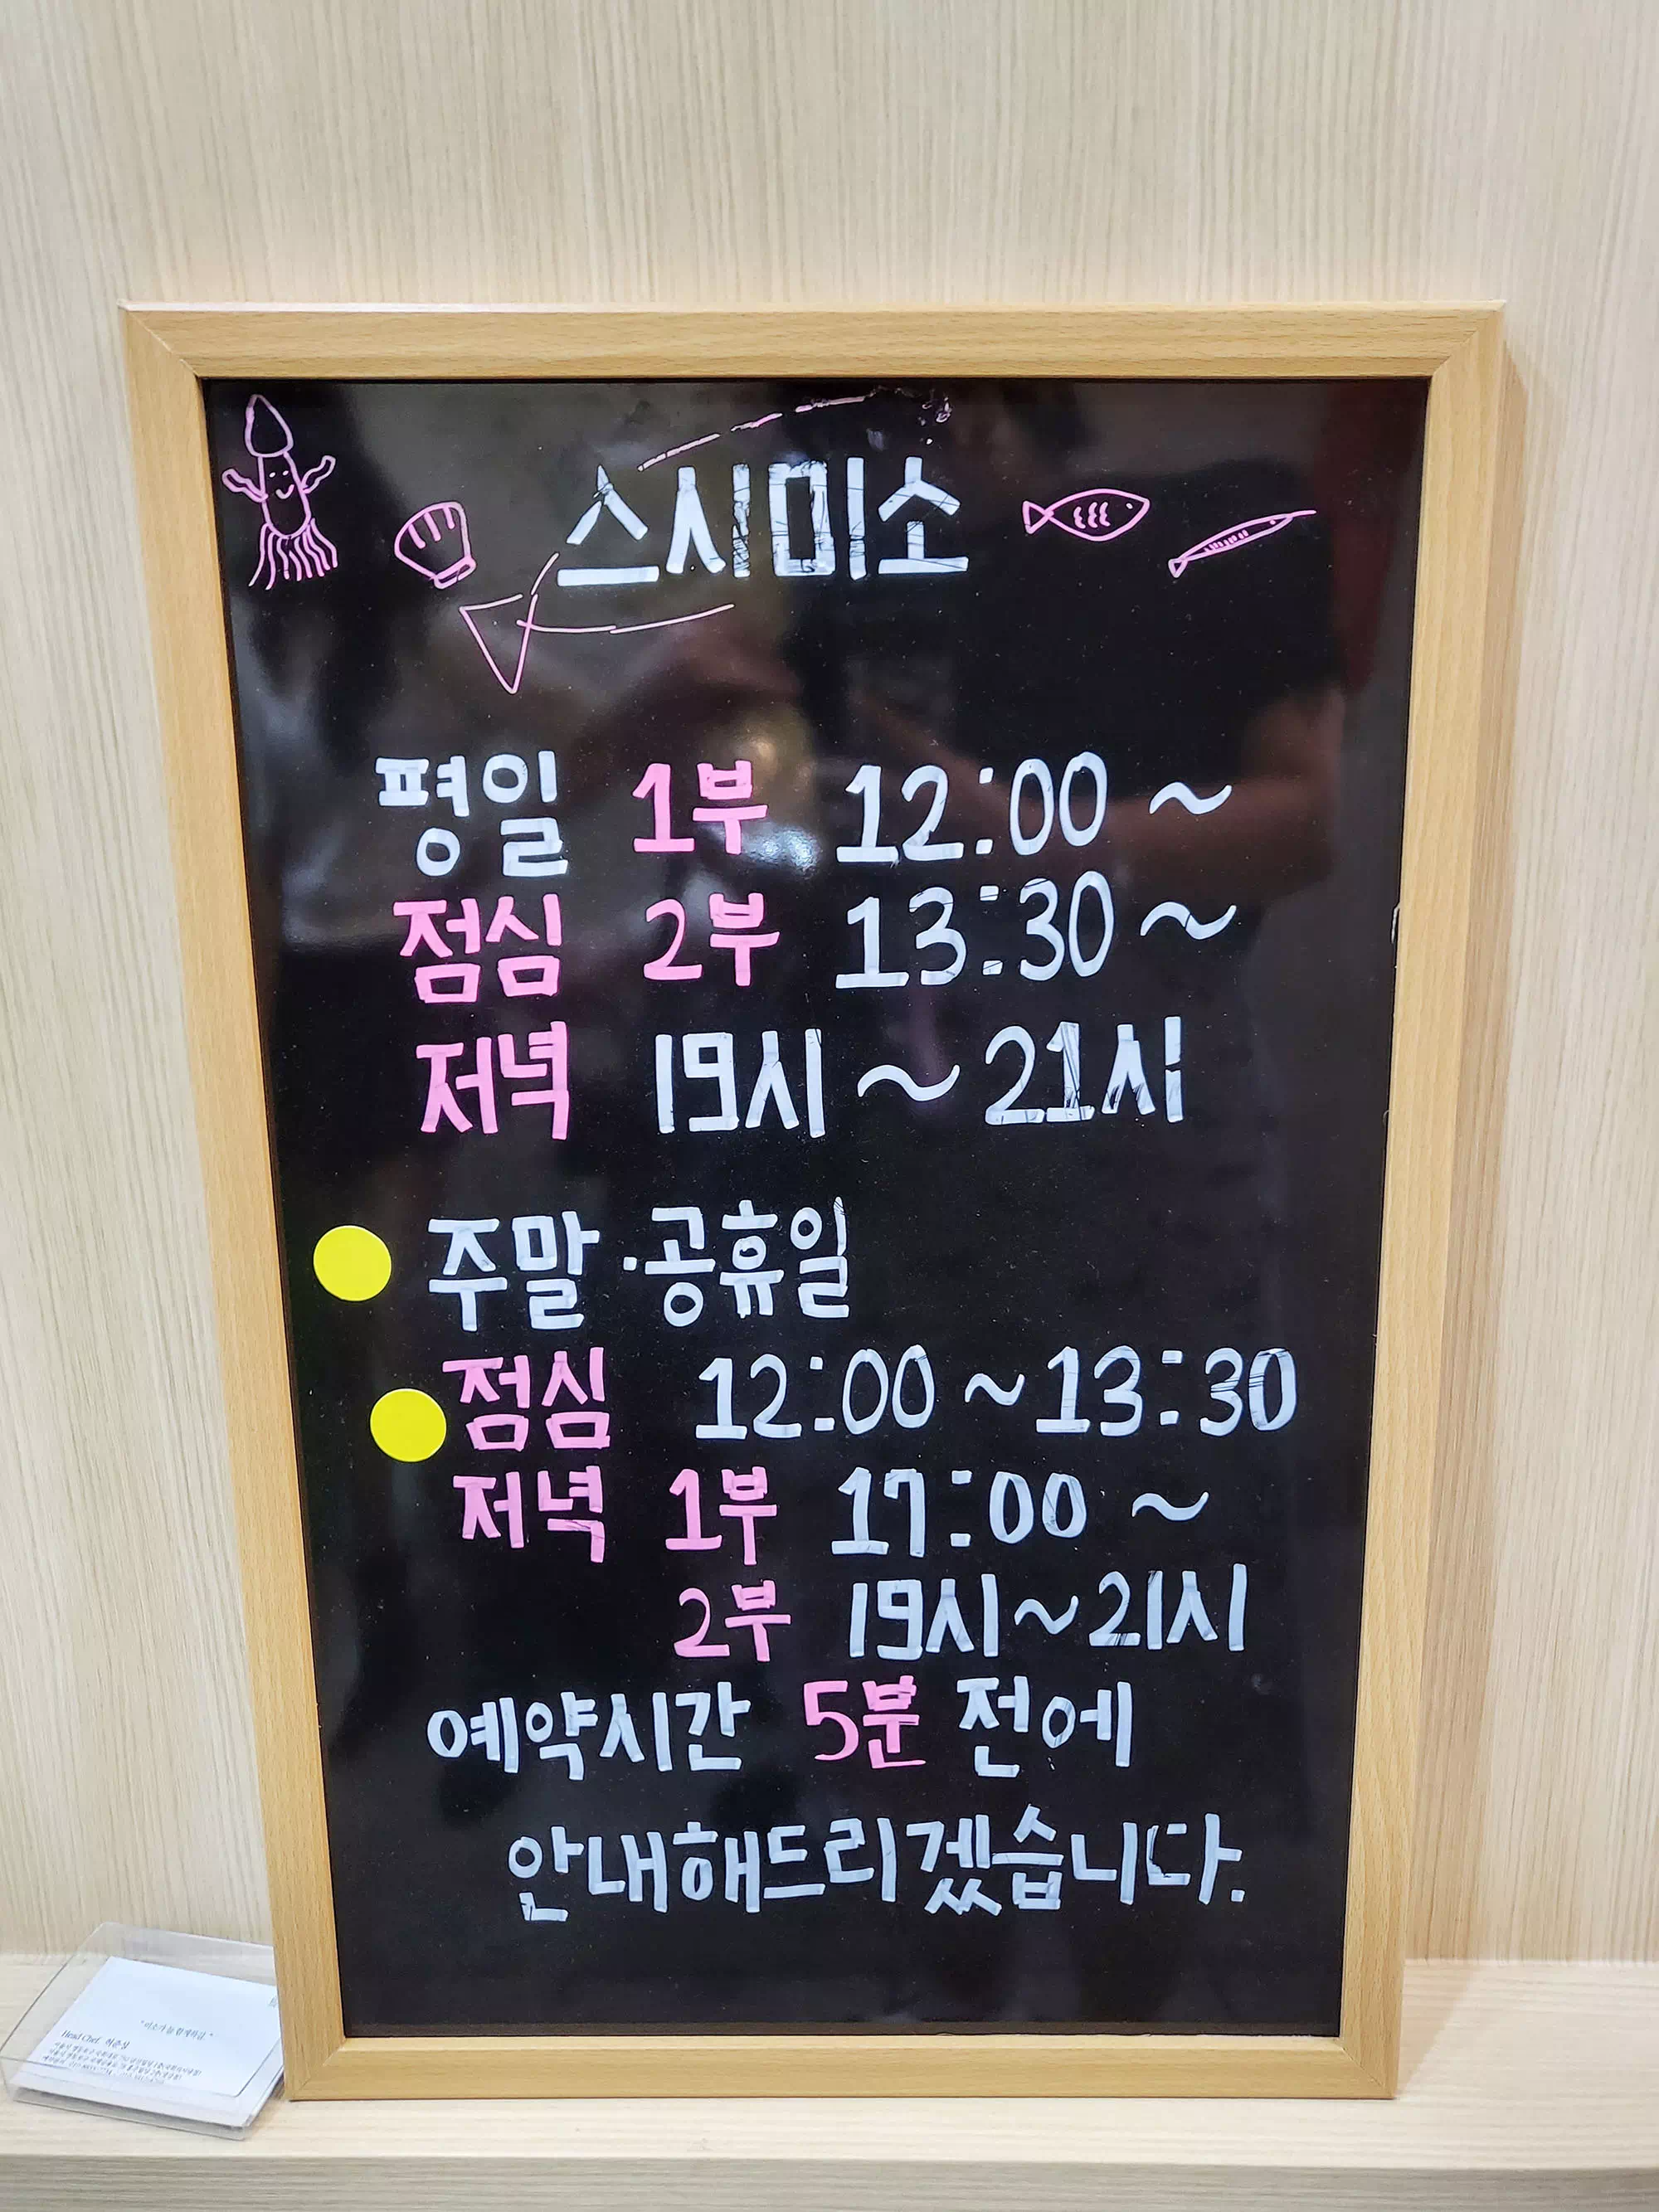 스시미소
평일 1부 12:00 ~
점심 2부 13:30 ~
저녁 19시 ~ 21시
주말·공휴일
점심 12:00 ~ 13:30
저녁 1부 17:00 ~
2부 19시 ~ 21시
예약시간 5분 전에
안내해드리겠습니다.
Head Chef